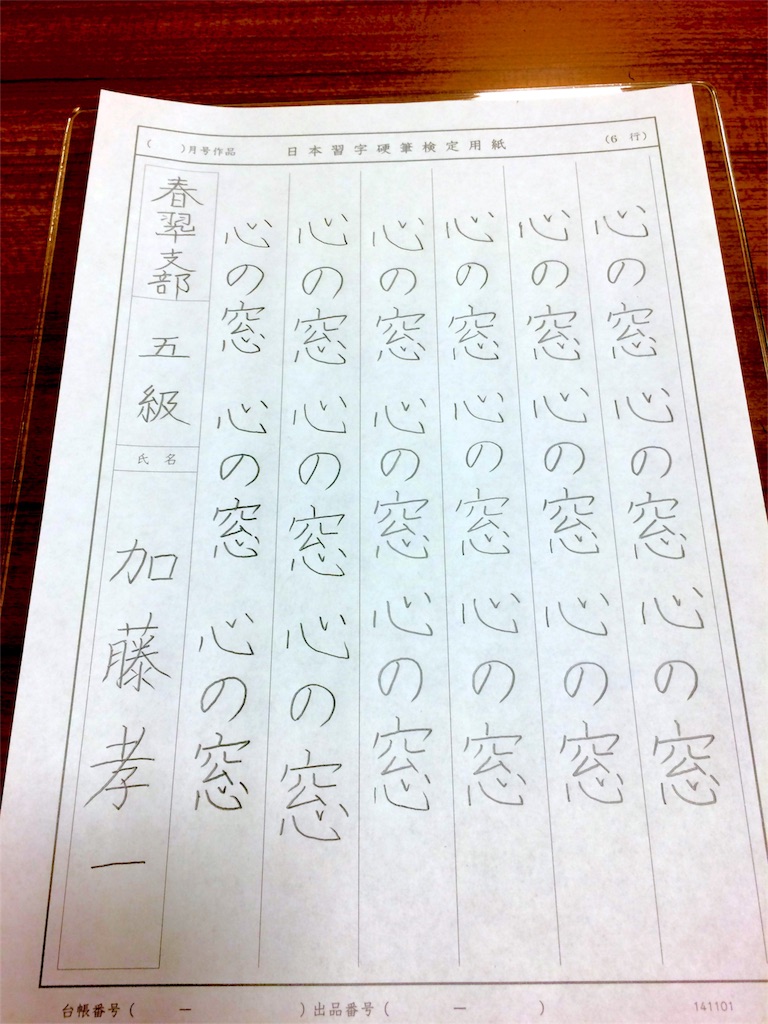 ( )月号作品 日本習字硬筆検定用紙 (6 行)
心の窓 心の窓 心の窓
心の窓 心の窓 心の窓
心の窓 心の窓 心の窓
心の窓 心の窓 心の窓
心の窓 心の窓 心の窓
心の窓 心の窓 心の窓
春翠支部 五級 氏名 加藤孝一
台帳番号( ー )出品番号( ー )
141101